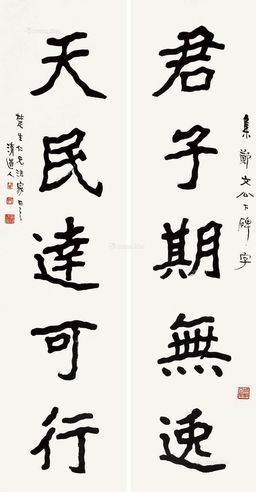 集鄭文公下碑字
君子期無逸
天民達可行
楚生仁兄法家正之
清道人